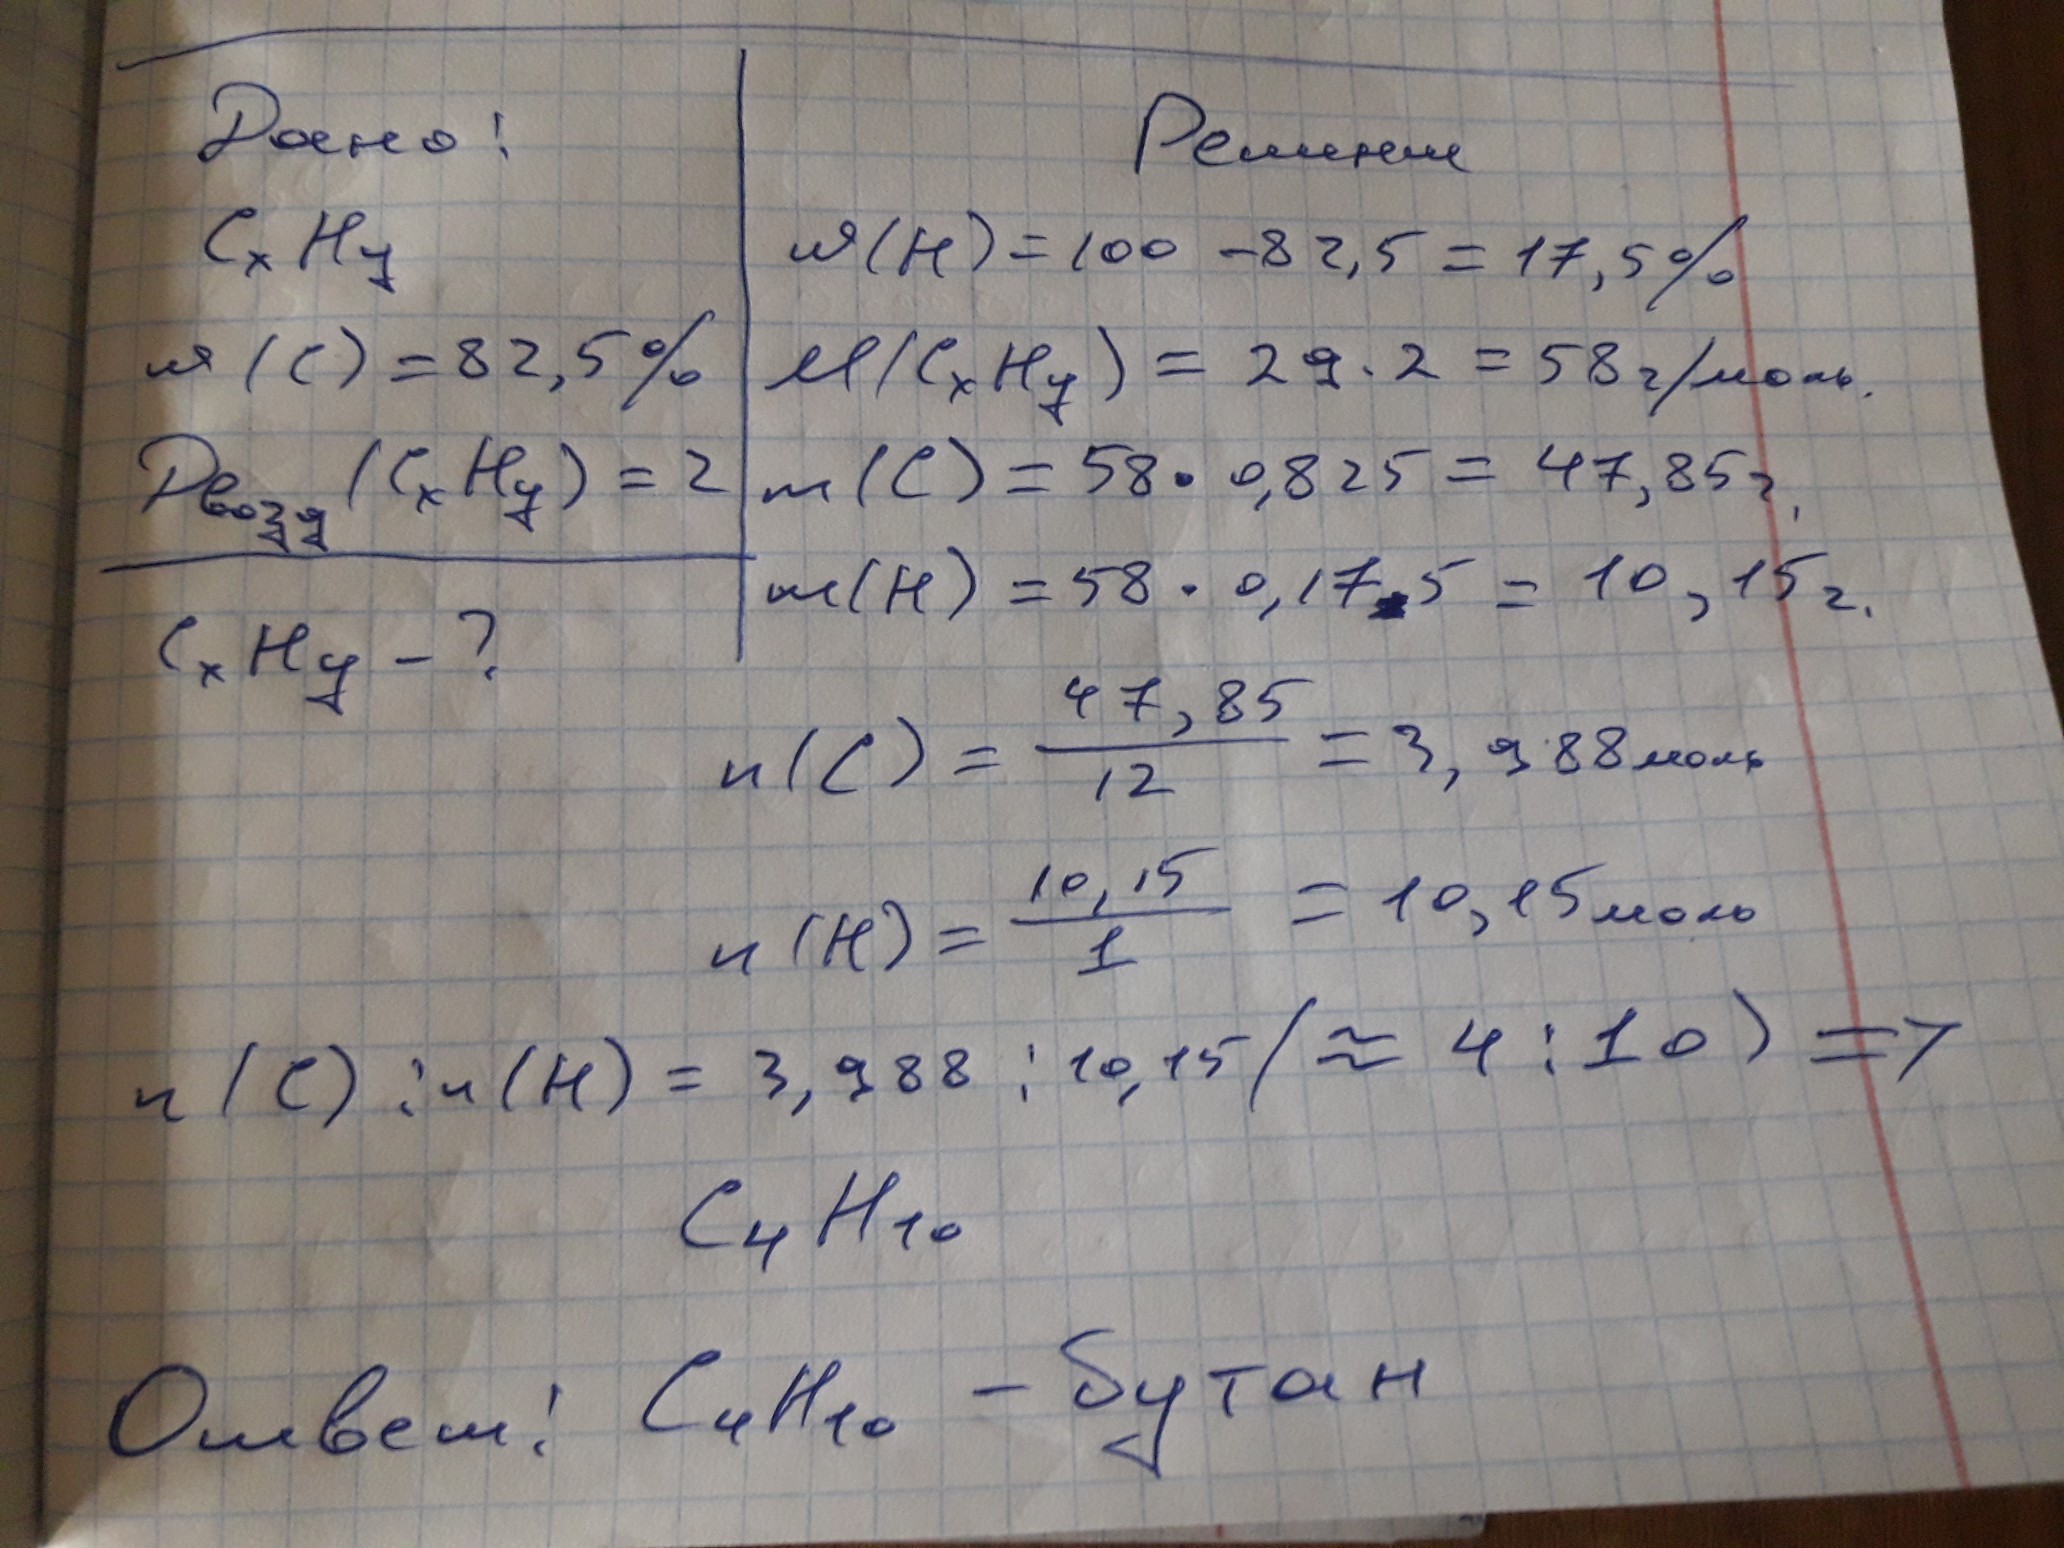 Дано:
CxHy
w(C) = 82,5%
Dвозд(CxHy) = 2
CxHy - ?
Решение
w(H) = 100 - 82,5 = 17,5%
M(CxHy) = 29 · 2 = 58 г/моль.
m(C) = 58 · 0,825 = 47,85 г.
m(H) = 58 · 0,175 = 10,15 г.
n(C) = 47,85/12 = 3,988 моль
n(H) = 10,15/1 = 10,15 моль
n(C) : n(H) = 3,988 : 10,15 (≈ 4 : 10) =>
C4H10
Ответ: C4H10 - бутан